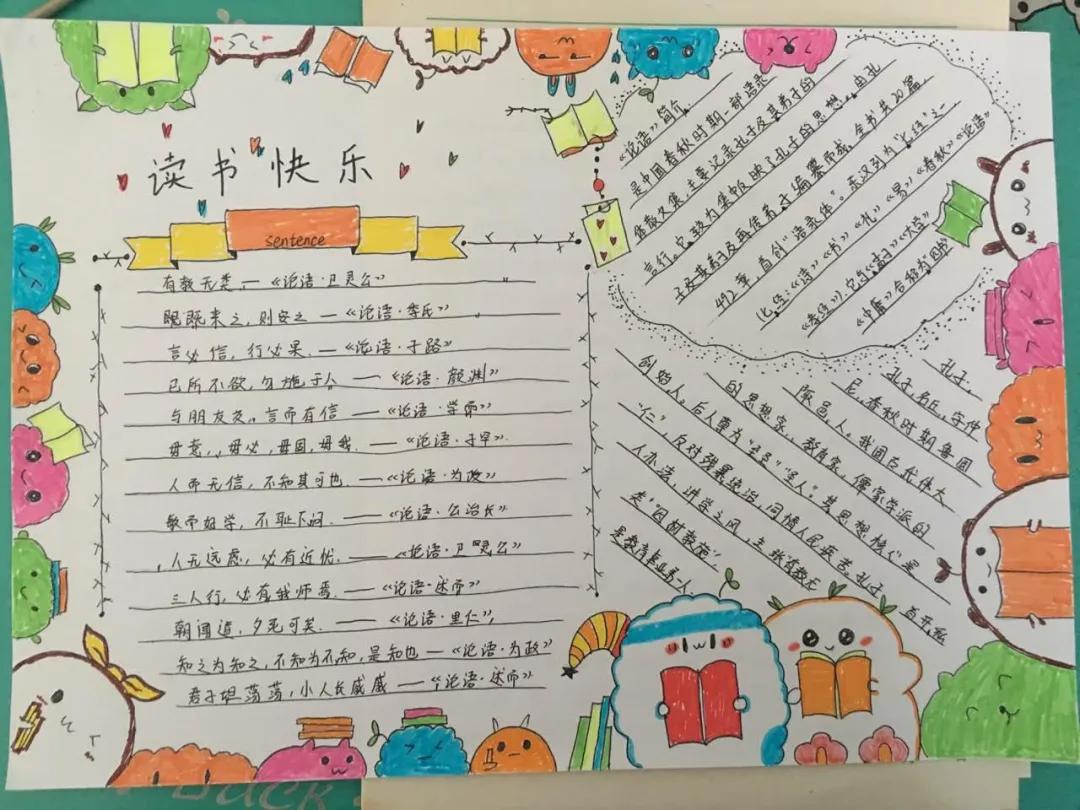 读书快乐
sentence
有教无类.—《论语·卫灵公》
既既来之,则安之 —《论语·季氏》
言必信,行必果.—《论语·子路》
己所不欲,勿施于人 —《论语·颜渊》
与朋友交,言而有信 —《论语·学而》
毋意,毋必,毋固,毋我.—《论语·子罕》
人而无信,不知其可也.—《论语·为政》
敏而好学,不耻下问.—《论语·公治长》
人无远虑,必有近忧.—《论语·卫灵公》
三人行,必有我师焉.—《论语·述而》
朝闻道,夕死可矣.—《论语·里仁》
知之为知之,不知为不知,是知也 —《论语·为政》
君子坦荡荡,小人长戚戚 —《论语·述而》
《论语》简介
是中国春秋时期一部语录
体散文集,主要记录孔子及其弟子的
言行。它较为集中反映了孔子的思想。由孔
子及其弟子及再传弟子编纂而成,全书共20篇
492章,首创"语录体"。东汉列为"七经"之一
七经:《诗》《书》《礼》《易》《春秋》《论语》
《孝经》.它与《孟子》《大学》
《中庸》合称为"四书"
孔子.
孔子名丘,字仲
尼,春秋时期鲁国
陬邑,人。我国古代伟大
的思想家、教育家,儒家学派的
创始人。后人尊为"圣人"。其思想核心是
"仁",反对残暴统治,同情人民疾苦.孔子
人办法,讲学之风,主张"有教无
类""因材施教"
是教育事业第一人